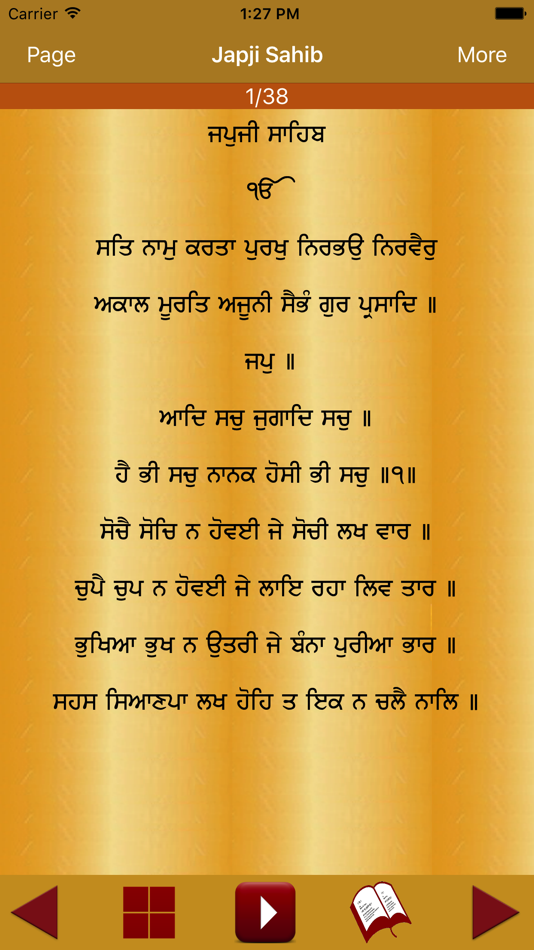 Carrier 1:27 PM
Page Japji Sahib More
1/38
ਜਪੁਜੀ ਸਾਹਿਬ
ੴ
ਸਤਿ ਨਾਮੁ ਕਰਤਾ ਪੁਰਖੁ ਨਿਰਭਉ ਨਿਰਵੈਰੁ
ਅਕਾਲ ਮੂਰਤਿ ਅਜੂਨੀ ਸੈਭੰ ਗੁਰ ਪ੍ਰਸਾਦਿ ॥
ਜਪੁ ॥
ਆਦਿ ਸਚੁ ਜੁਗਾਦਿ ਸਚੁ ॥
ਹੈ ਭੀ ਸਚੁ ਨਾਨਕ ਹੋਸੀ ਭੀ ਸਚੁ ॥੧॥
ਸੋਚੈ ਸੋਚਿ ਨ ਹੋਵਈ ਜੇ ਸੋਚੀ ਲਖ ਵਾਰ ॥
ਚੁਪੈ ਚੁਪ ਨ ਹੋਵਈ ਜੇ ਲਾਇ ਰਹਾ ਲਿਵ ਤਾਰ ॥
ਭੁਖਿਆ ਭੁਖ ਨ ਉਤਰੀ ਜੇ ਬੰਨਾ ਪੁਰੀਆ ਭਾਰ ॥
ਸਹਸ ਸਿਆਣਪਾ ਲਖ ਹੋਹਿ ਤ ਇਕ ਨ ਚਲੈ ਨਾਲਿ ॥